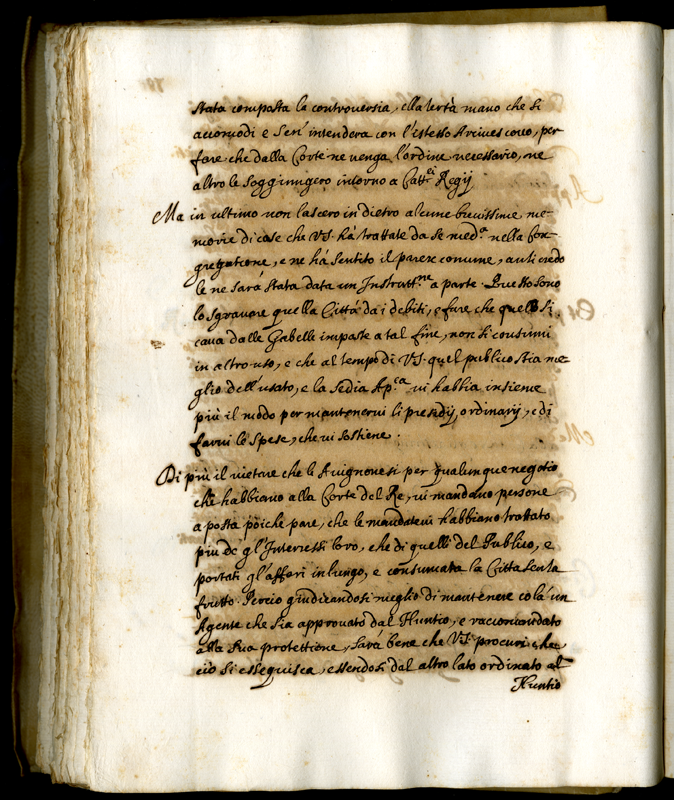 stata composta la controversia, ella terrà mano che si
accomodi e sen' intenderà con l'istesso Arcivescovo, per
fare che dalla Corte ne venga l'ordine necessario, ne
altro le soggiungero intorno a Catt.ci Regij
Ma in ultimo non lascero in dietro alcune brevissime me-
morie di cose che V.S. há trattate da se med.a nella Con-
gregatione, e ne há sentito il parere comune, anzi credo
le ne sará stata data un Instrutt.ne a parte. Questo sono
lo sgravare quella Cittá da i debiti, e fare che quello si
cava dalle Gabelle imposte a tal fine, non si consumi
in altro uso, e che al tempo di V.S. quel publico stia me-
glio dell'usato, e la Sedia Ap.ca vi habbia insieme
più il modo per mantenervi li presidij ordinarij, e di
farvi le spese, che vi sostiene.
Di più il vietare che le Avignonesi per qualunque negotio
che habbiano alla Corte del Re, vi mandano persone
a posta poiche pare, che le mandatevi habbiano trattato
più de gl'Interessi loro, che di quelli del Publico, e
portati gl'affari in lungo, e consumata la Citta senza
frutto. Percio giudicandosi meglio di mantenere colà un
Agente che sia approvato dal Nuntio, e raccomandato
alla sua protettione, sará bene che V.S. procuri, che
ciò si esseguisca, essendosi dal altro lato ordinato al
Nuntio